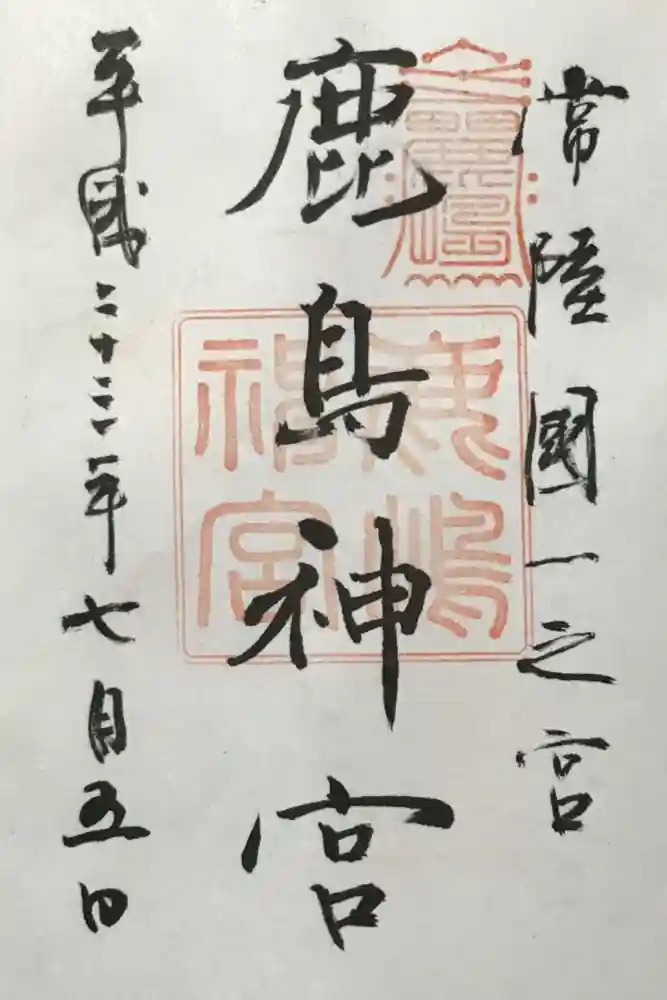 常陸國一之宮
鹿島神宮
平成二十三年七月五日
鹿嶋
神宮